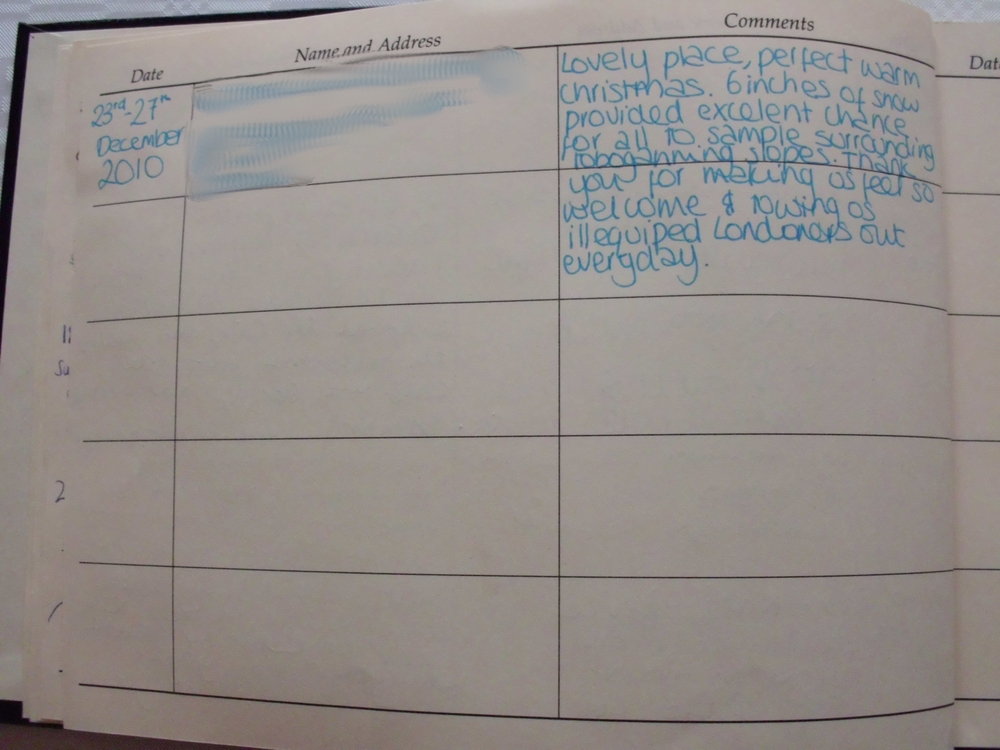 Date
Name and Address
Comments
23rd-27th
December
2010
Lovely place, perfect warm
christmas. 6 inches of snow
provided excelent chance
for all to sample surrounding
toboganming slopes. Thank
you for making us feel so
welcome & towing us
illequiped Londoners out
everyday.
Dat
11
Su
2